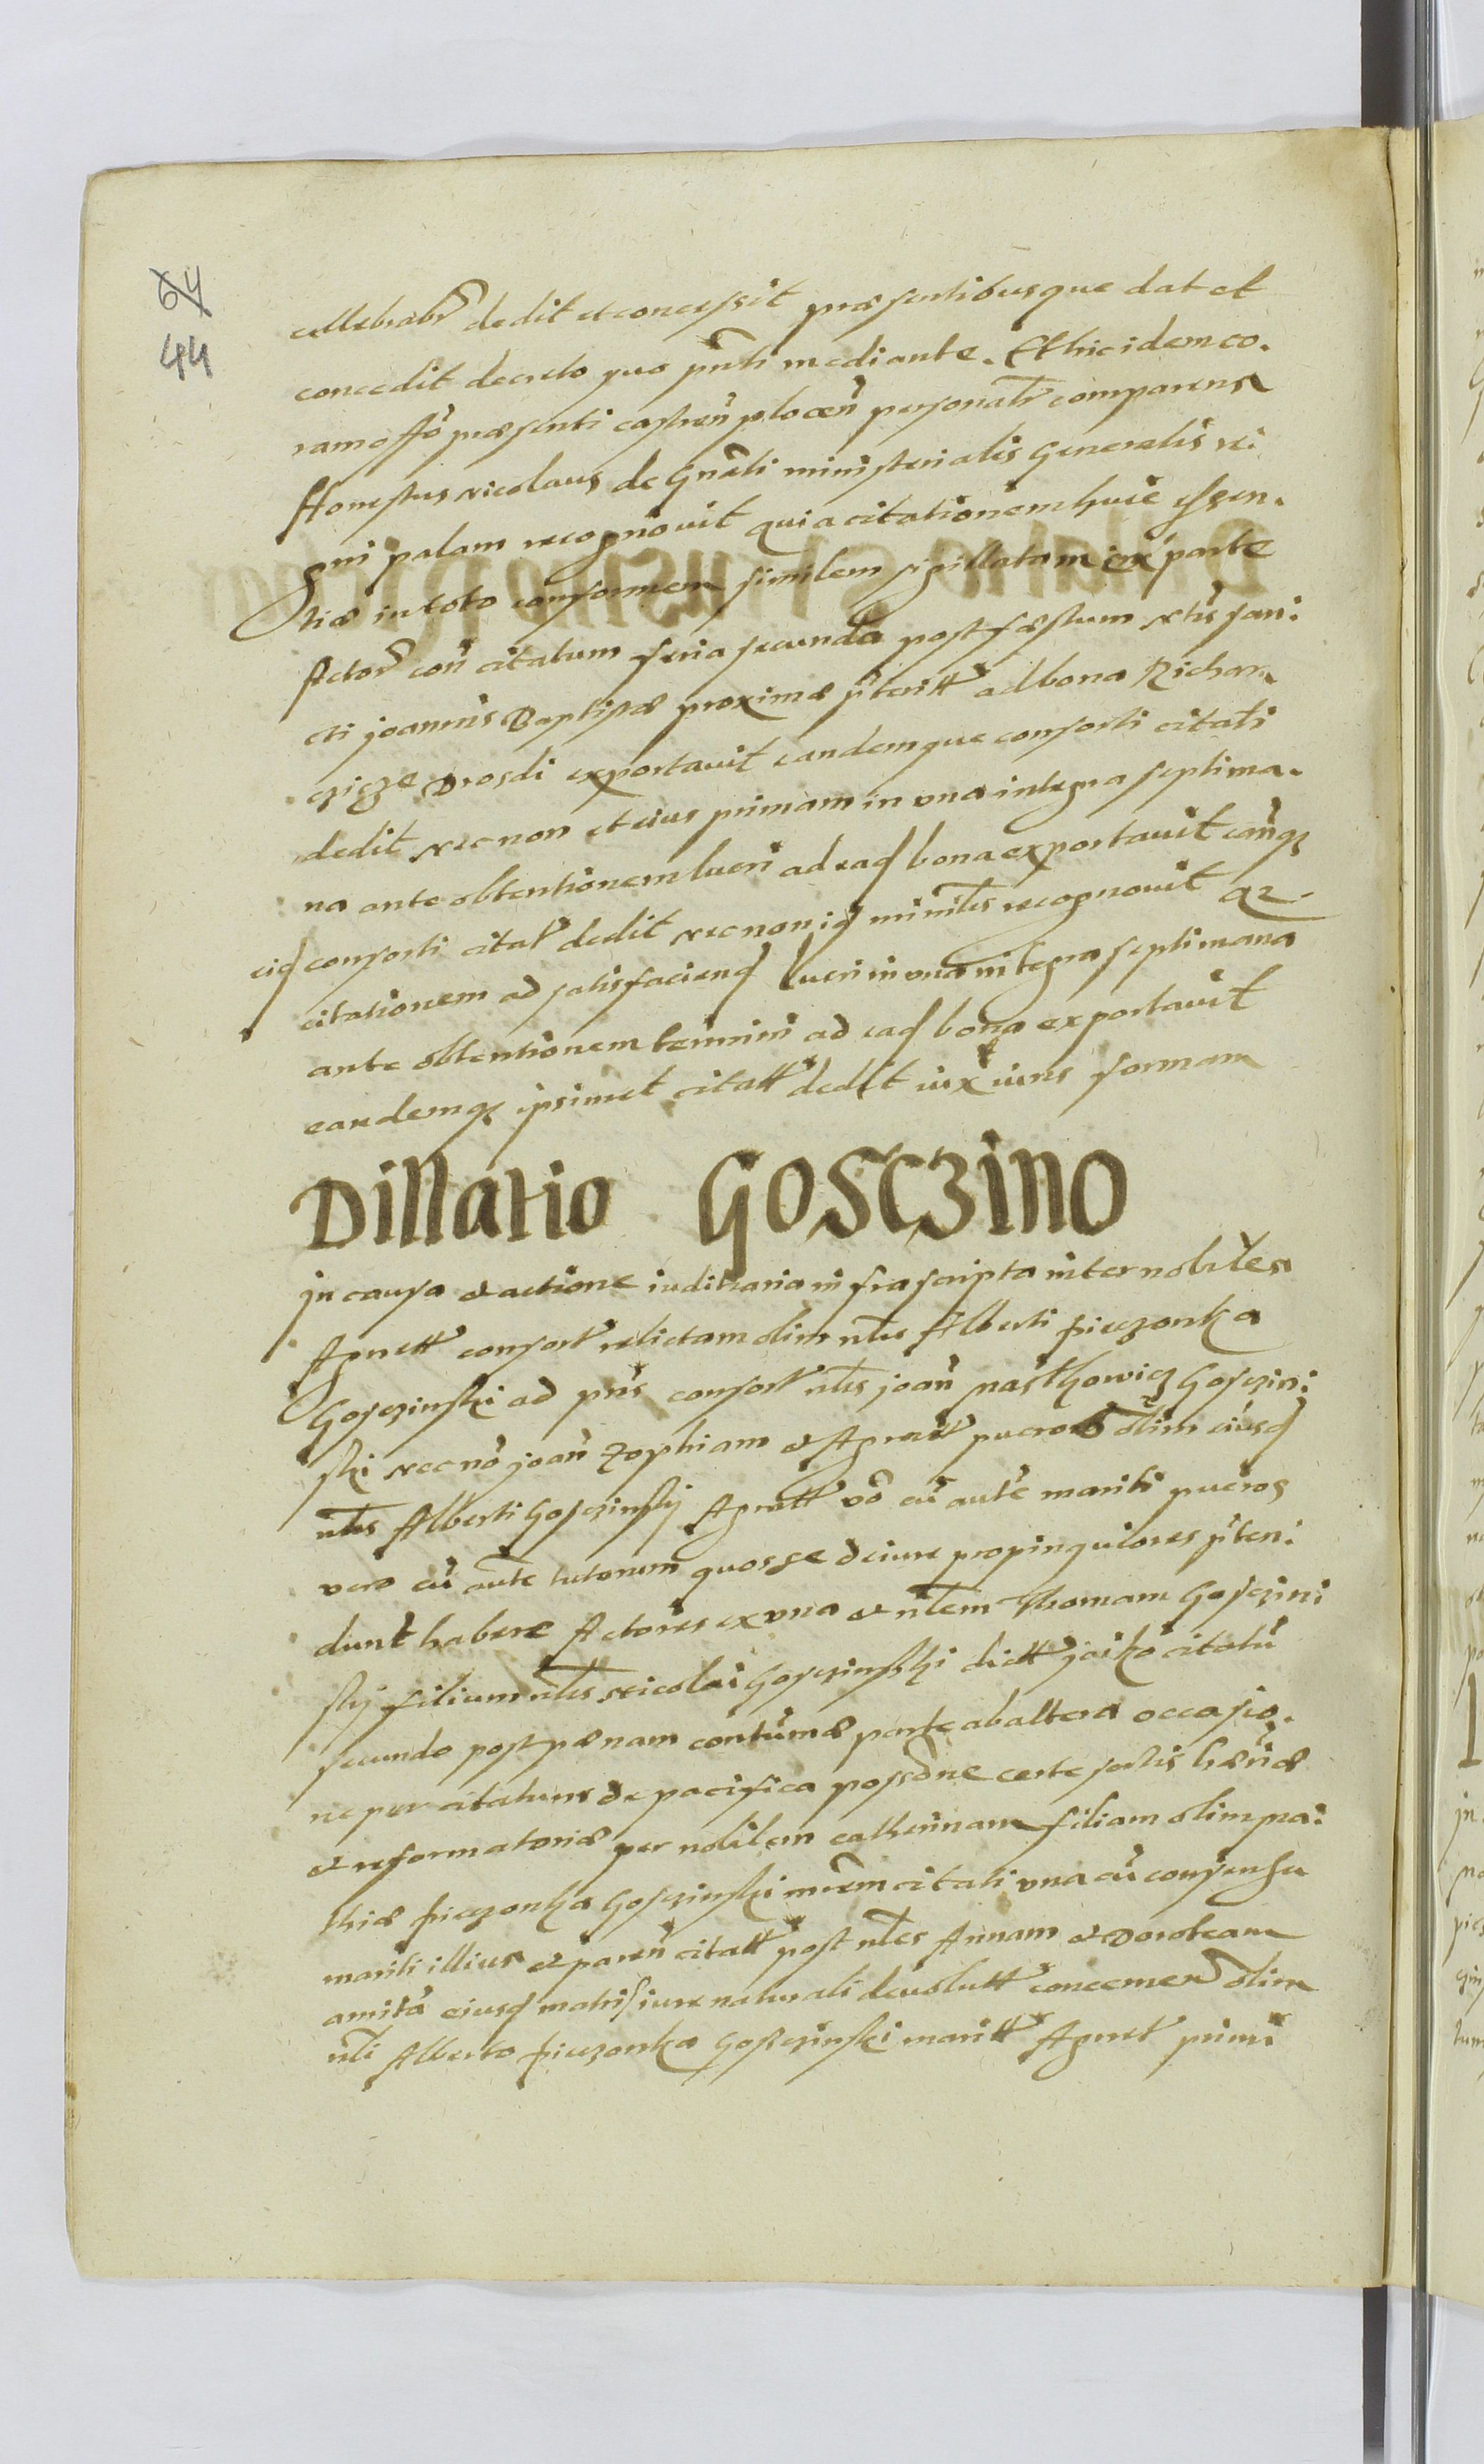 64
44
cellebrabr̃ dedit et concessit præsentibusque dat et
concedit decreto suo pñti mediante. Et hic idem co.
ram offõ præsenti castreñ plocen̄ personalr̃ comparens
Honestus nicolaus de Gnathi ministerialis Generalis re:
gni palam recognovit quia citationem huic essen.
tiæ in toto conformem similem sigillatam ex parte
Actor̃ con̄ citatum feria secunda post fæstum Nt̃is san:
cti joannis Baptistæ proximæ p̃teritt ad bona Richar
czicze Drosdi exportavit eandemque consorti citati
dedit Necnon et eius primam in una integra septima.
na ante obtentionem lucri ad eaď bona exportavit eanq̨
eiď consorti citat dedit Necnon iď minist̃lis recognovit qz
citationem ad satisfacienď lucri in una integra septimana
ante obtentionem termini ad eaď bona exportavit
eandemq̨ ipsimet citatt dedit iux iuris formam
Dillatio GOSCZINO
jn causa et actione iuditiaria infrascripta inter nobiles
Agnett consort relictam olim nl̃is Alberti pieczonka
Gosczinski ad pñs consort nl̃is joan̄ Nasthowicz Gosczin:
ski Necnõ joan̄ Zophiam et Agnett pueros olim eiusď
nl̃is Alberti Gosczinsky Agnett võ cũ autẽ mariti pueros
vero cũ aut̃e tutorum quos se de iure propinquiores p̃ten:
dunt habere Actores ex una et nl̃em Thomam Gosczin:
sky filium nl̃is Nicolai Gosczinskhi dictt jaiko citatũ
secundo post pænam contumæ parte ab altera occasio.
ne per citatum de pacifica possõne certe sortis hæñdæ
et reformatoriæ per nobilem catherinam filiam olim Ma:
thiæ pieczonka Gosczinski mr̃em citati una cũ consensu
mariti illius et paren̄ citatt post nl̃es Annam et Doroteam
amita eiusď matris iure naturali devolutt concernen̄ olim
nl̃i Alberto pieczonka Gosczinski maritt Agnet primi